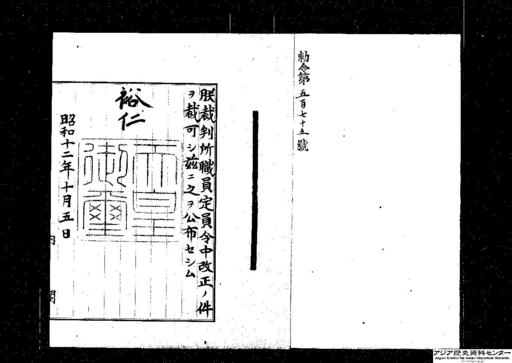 勅令第五百七十五號
朕裁判所職員定員令中改正ノ件
ヲ裁可シ茲ニ之ヲ公布セシム
裕仁
天皇御璽
昭和十二年十月五日
内閣
アジア歴史資料センター
Japan Center for Asian Historical Records